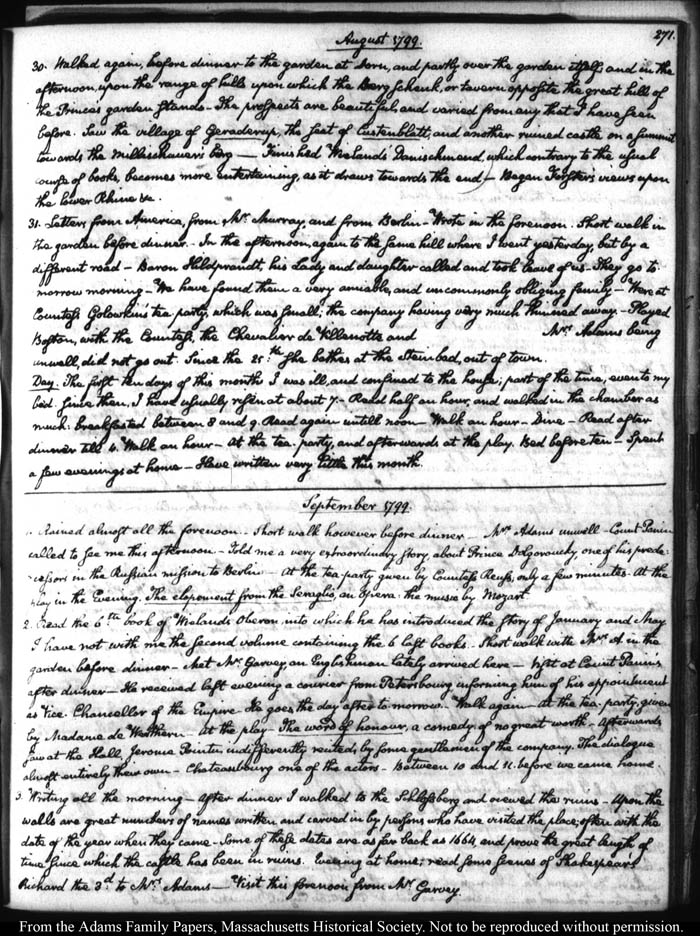 271.
August 1799.
30. Walked again, before dinner to the garden at Dorn, and partly over the garden itself, and in the
afternoon, upon the range of hills upon which the Berg Schenk, or tavern opposite the great hill of
the Princes garden stands. The prospects are beautiful, and varied from any that I have seen
before. Saw the village of Geraderup, the seat of and another ruined castle on a summit
towards the berg — Finished Wieland's Danischmend, which contrary to the usual
course of books, becomes more entertaining, as it draws towards the end — Began Forster's views upon
the lower Rhine &c.
31. Letters from America, from Mr. Murray, and from Berlin. Wrote in the forenoon. Short walk in
the garden before dinner. In the afternoon, again to the same hill where I went yesterday, but by a
different road — Baron Hildprandt, his Lady and daughter called and took leave of us. They go to-
morrow morning — We have found them a very amiable, and uncommonly obliging family — Were at
Countess Golowkin's tea party, which was small; the company having very much thinned away. — Played
Boston, with the Countess, the Chevalier de Villenotte and Mrs. Adams being
unwell, did not go out. Since the 25.th she bathes at the Steinbad, out of town.
Day. The first ten days of this month I was ill, and confined to the house; part of the time, even to my
bed. Since then, I have usually risen at about 7. — Read half an hour, and walked in the chamber as
much: breakfasted between 8 and 9. Read again untill noon — Walk an hour — Dine — Read after
dinner till 4. Walk an hour — At the tea-party, and afterwards at the play. Bed before ten — Spent
a few evenings at home — Have written very little this month.
September 1799.
1. Rained almost all the forenoon. Short walk however before dinner — Mrs. Adams unwell — Count Panin
called to see me this afternoon — Told me a very extraordinary story, about Prince Dolgorouky, one of his prede-
cessors in the Russian mission to Berlin — At the tea party given by Countess Reuss, only a few minutes. At the
play in the Evening. The elopement from the Seraglio, an Opera: the music by Mozart.
2. Read the 6.th book of Wielands Oberon, into which he has introduced the story of January and May
I have not with me the second volume containing the 6 last books. Short walk with Mrs. A. in the
garden before dinner — Met Mr. Garvey an Englishman lately arrived here — Visit at Count Panins
after dinner — He received last evening a courier from Petersbourg informing him of his appointment
as Vice-Chancellor of the Empire. He goes the day after to-morrow. Walk again — At the tea-party given
by Madame de Werthern — At the play — The word of honour, a comedy of no great worth — Afterwards
saw at the Hall, Jerome Pointu, indifferently recited, by some gentlemen of the company. The dialogue
almost entirely their own — Chateaubourg one of the actors — Between 10 and 11. before we came home.
3. Writing all the morning — After dinner I walked to the Schlossberg and viewed the ruins — Upon the
walls are great numbers of names written and carved in by persons who have visited the place; often with the
date of the year when they came — Some of these dates are as far back as 1664, and prove the great length of
time since which the castle has been in ruins. Evening at home; read some scenes of Shakespear's
Richard the 3.d to Mrs. Adams — Visit this forenoon from Mr. Garvey.
From the Adams Family Papers, Massachusetts Historical Society. Not to be reproduced without permission.